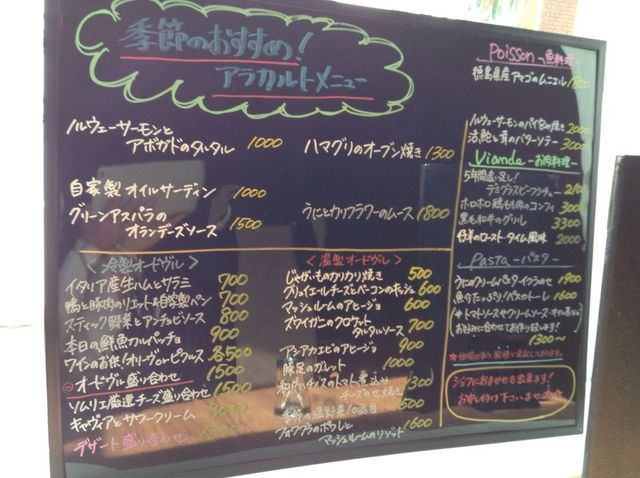 季節のおすすめ!
アラカルトメニュー
ノルウェーサーモンと
アボガドのタルタル 1000
ハマグリのオーブン焼き 1300
自家製オイルサーディン 1000
グリーンアスパラの
オランデーズソース 1500
うにとカリフラワーのムース 1800
<冷製オードヴル>
イタリア産生ハムとサラミ 700
鴨と豚肉のリエット&自家製パン 700
スティック野菜とアンチョビソース 800
本日の鮮魚カルパッチョ 900
ワインのお供!オリーヴorピクルス 各500
オードヴル盛り合わせ 1500
ソムリエ厳選チーズ盛り合わせ 1500
キャヴィアとサワークリーム 3000
デザート盛り合わせ
<温製オードヴル>
じゃがいものカリカリ焼き 500
グリュイエールチーズとベーコンのキッシュ 600
マッシュルームのアヒージョ 600
ズワイガニのクロケット
タルタルソース 700
アシアカエビのアヒージョ 900
豚足のガレット 1000
チーズのせ焼き 1300
季節の温野菜10品目 500
フォワグラのポワレと
マッシュルームのリゾット 1600
Poisson -魚料理-
徳島県産アマゴのムニエル 1800
ノルウェーサーモンのパイ包み焼き 2000
活鮑と茸のバターソテー 3000
Viande -お肉料理-
5年間通し足し!
デミグラスビーフシチュー 2100
ホロホロ鶏もも肉のコンフィ 3000
黒毛和牛のグリル 3300
仔羊のロースト タイム風味 2000
Pasta -パスタ-
うにのクリームパスタ イクラのせ 1900
魚介たっぷりペスカトーレ 1600
お好みに合わせてお作り致します!
1300~
シェフにおまかせも出来ます!
お申し付け下さいませ